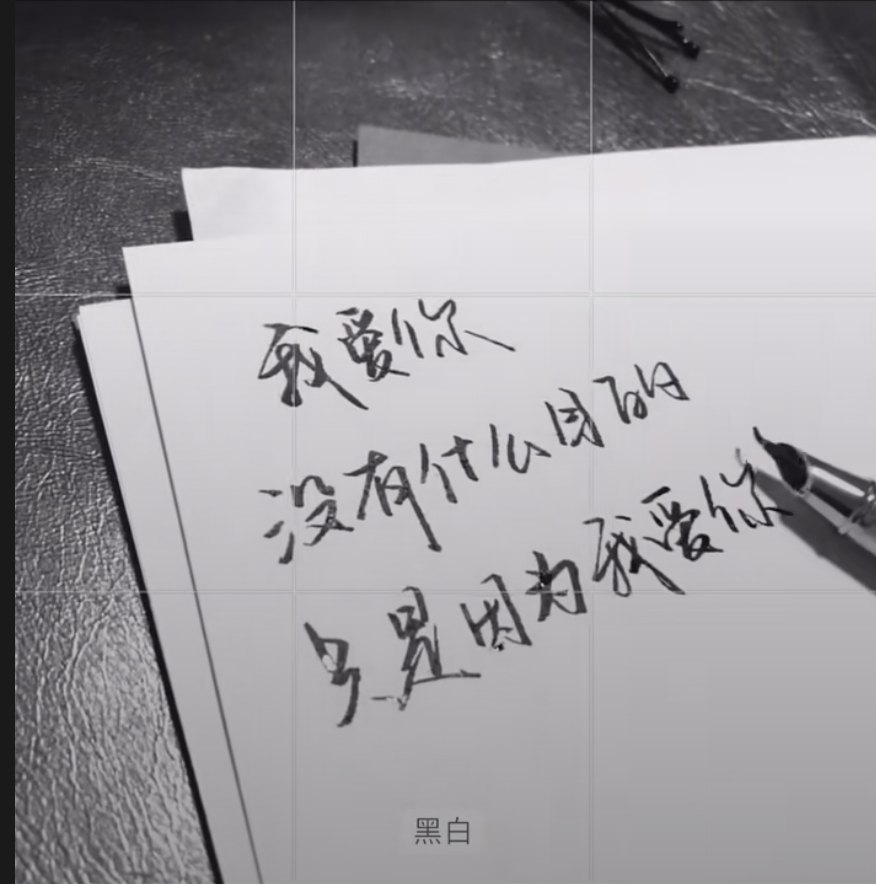 我爱你
没有什么目的
只是因为我爱你
黑白